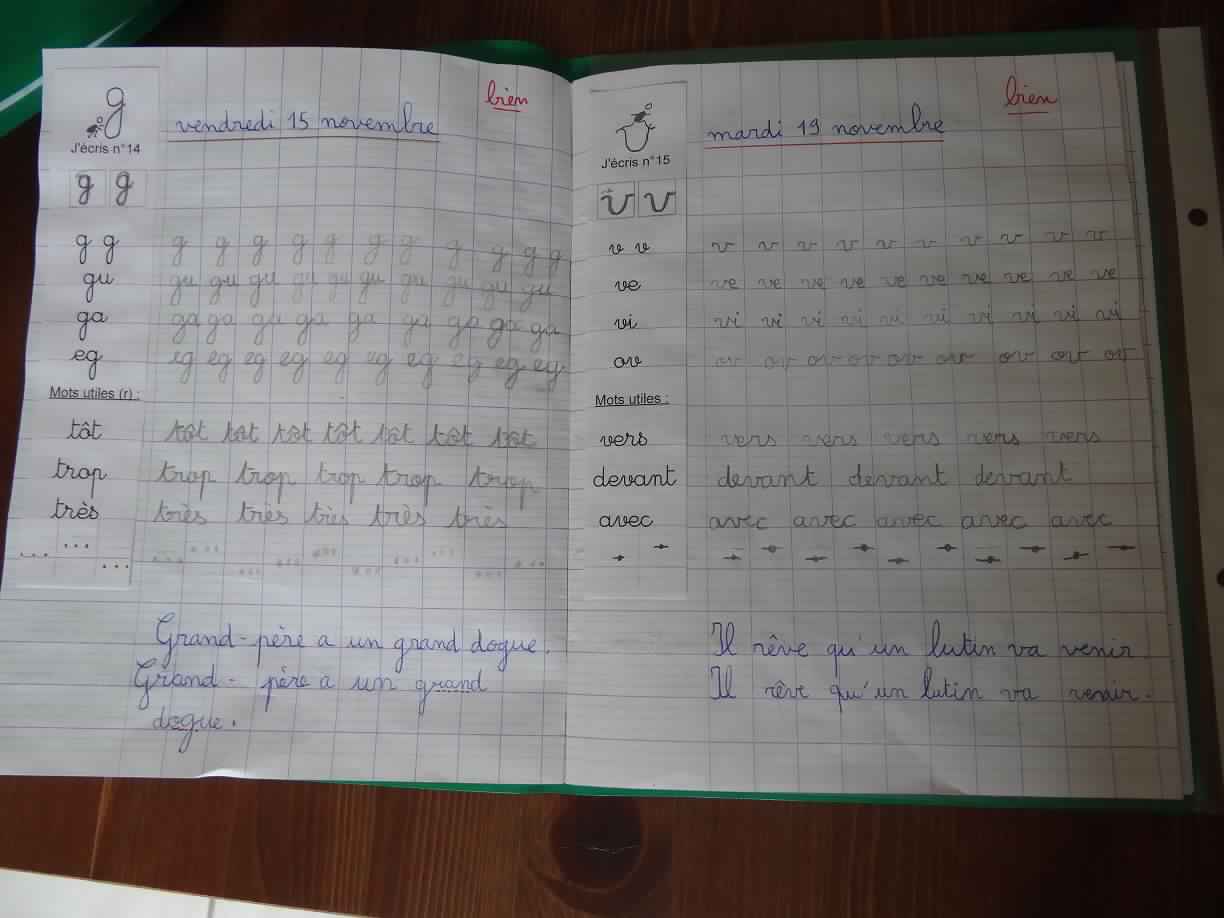 bien
vendredi 15 novembre
J'écris n°14
g g
g g g g g g g g g g g g g
gu gu gu gu gu gu gu gu gu gu gu
ga ga ga ga ga ga ga ga ga ga
eg eg eg eg eg eg eg eg eg eg eg
Mots utiles (r) :
tôt tôt tôt tôt tôt tôt tôt tôt
trop trop trop trop trop trop
très très très très très très
Grand-père a un grand dogue.
Grand-père a un grand
dogue.
bien
mardi 19 novembre
J'écris n°15
v v
v v v v v v v v v v v v
ve ve ve ve ve ve ve ve ve ve ve
vi vi vi vi vi vi vi vi vi vi vi
ov ov ov ov ov ov ov ov ov ov
Mots utiles :
vers vers vers vers vers vers
devant devant devant devant
avec avec avec avec avec avec
Il rêve qu'un lutin va venir
Il rêve qu'un lutin va venir.